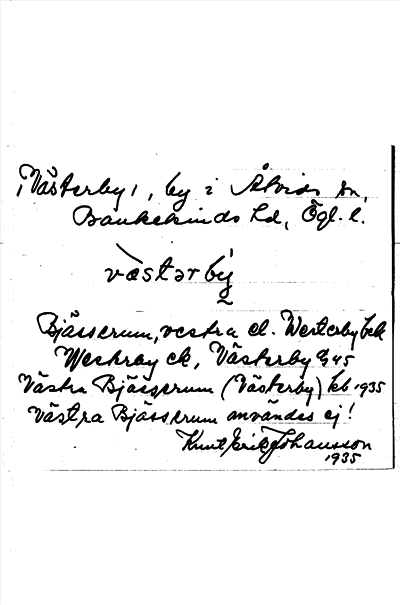 Västerby, by i Åtvids sn,
Bankekinds hd, Ögl. l.
västərby
Bjässerum, vestra el. Westerby bek
Westerby ek, Västerby GS 45
Västra Bjässerum (Västerby) kb 1935
Västra Bjässerum användes ej!
Knut Erik Johansson
1935